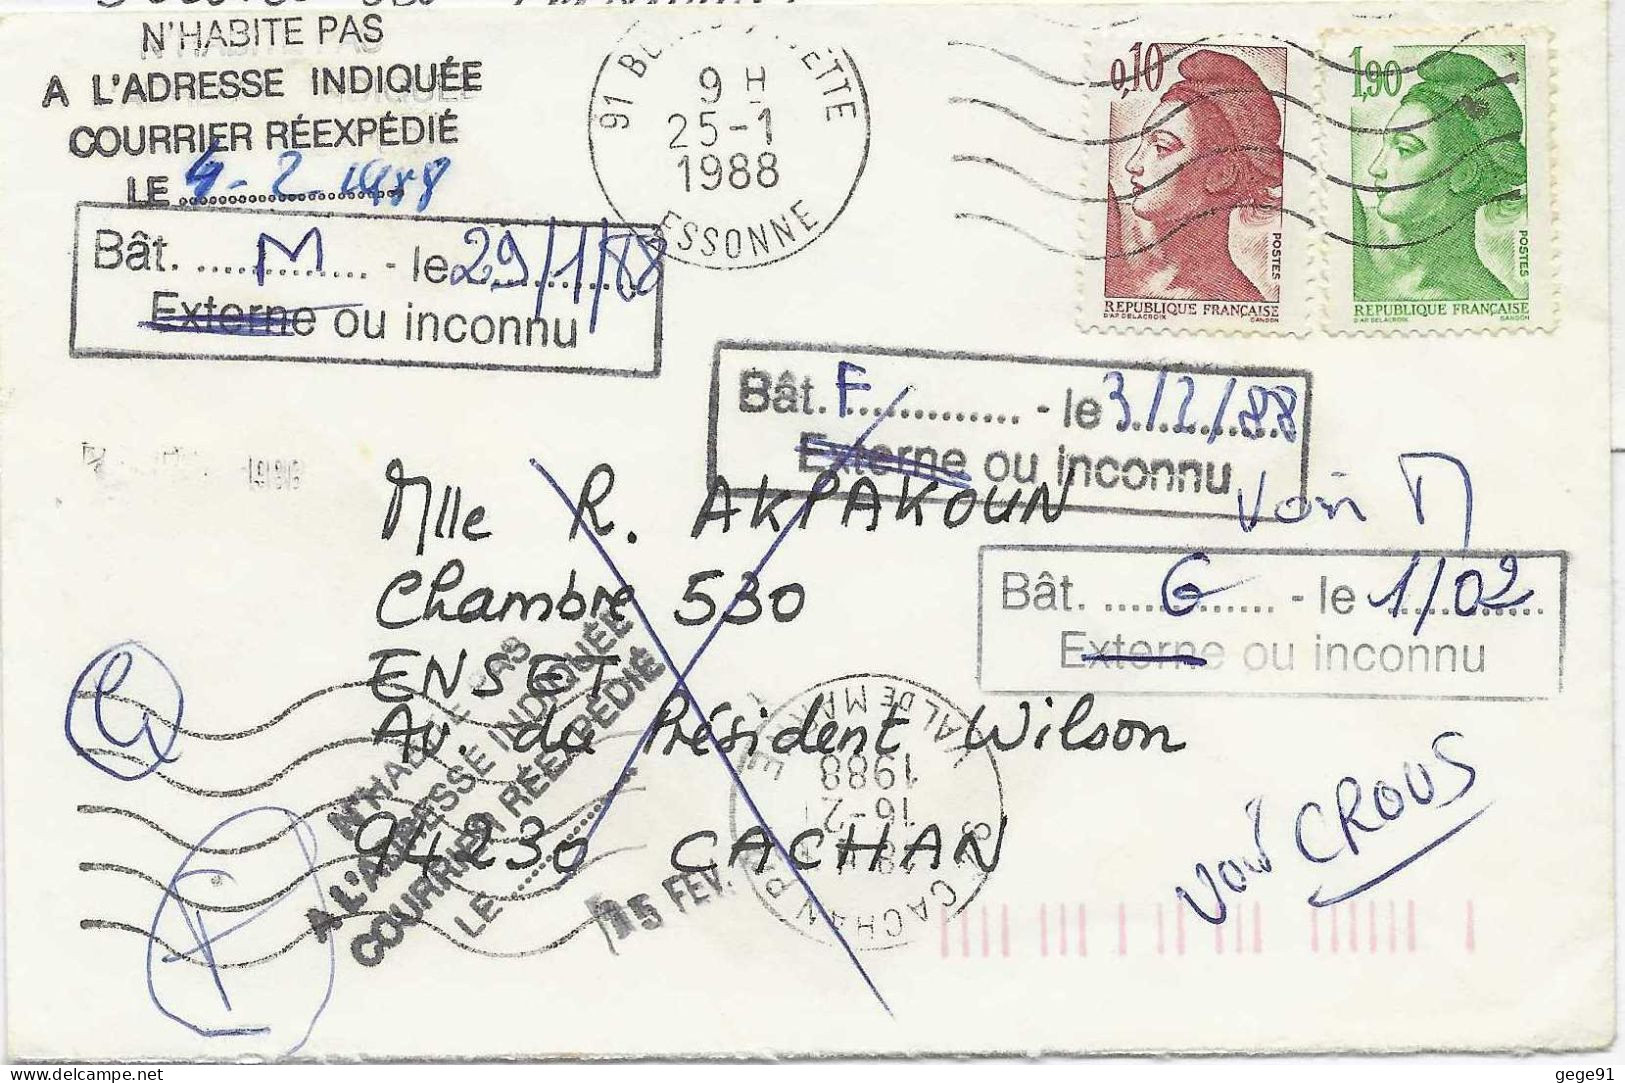 N'HABITE PAS
A L'ADRESSE INDIQUÉE
COURRIER RÉEXPÉDIÉ
LE 4-2-1988
9 H
25-1
1988
ESSONNE
0,10
POSTES
REPUBLIQUE FRANÇAISE
D'AP. DELACROIX GANDON
1,90
POSTES
REPUBLIQUE FRANÇAISE
D'AP. DELACROIX GANDON
Bât. M - le 29/1/88
Externe ou inconnu
Bât. F - le 3/2/88
Externe ou inconnu
Voir M
Bât. G - le 1/02
Externe ou inconnu
Mlle R. AKPAKOUN
Chambre 530
ENSET
Av. du Président Wilson
94230 CACHAN
N'HABITE PAS
A L'ADRESSE INDIQUÉE
COURRIER RÉEXPÉDIÉ
LE
15 FEV.
94 CACHAN
16-2
1988
VAL DE MARNE
Voir CROUS
gege91